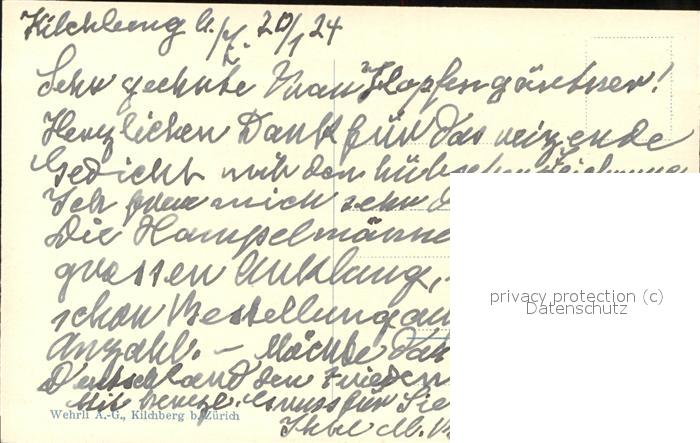 Kilchberg b./Z. 20/1 24
Sehr geehrte Frau Hopfengärtner!
Herzlichen Dank für das reizende
Gedicht mit der hübschen Zeichnung
Ich freue mich sehr
Die Hampelmänne
grossen Anklang,
schon Bestellung
Anzahl. — Möchte das
Deutschland den Frieden
Mit herzl. Gruss für Sie
Ihre M.
Wehrli A.-G., Kilchberg b. Zürich
privacy protection (c)
Datenschutz